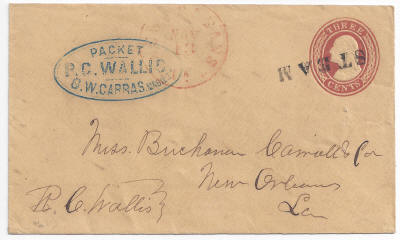 PACKET
R. C. WALLIS
G. W. CARRAS
NOV
THREE
CENTS
STEAM
Miss. Buchanan Carroll & Co
New Orleans
La
R. C. Wallis